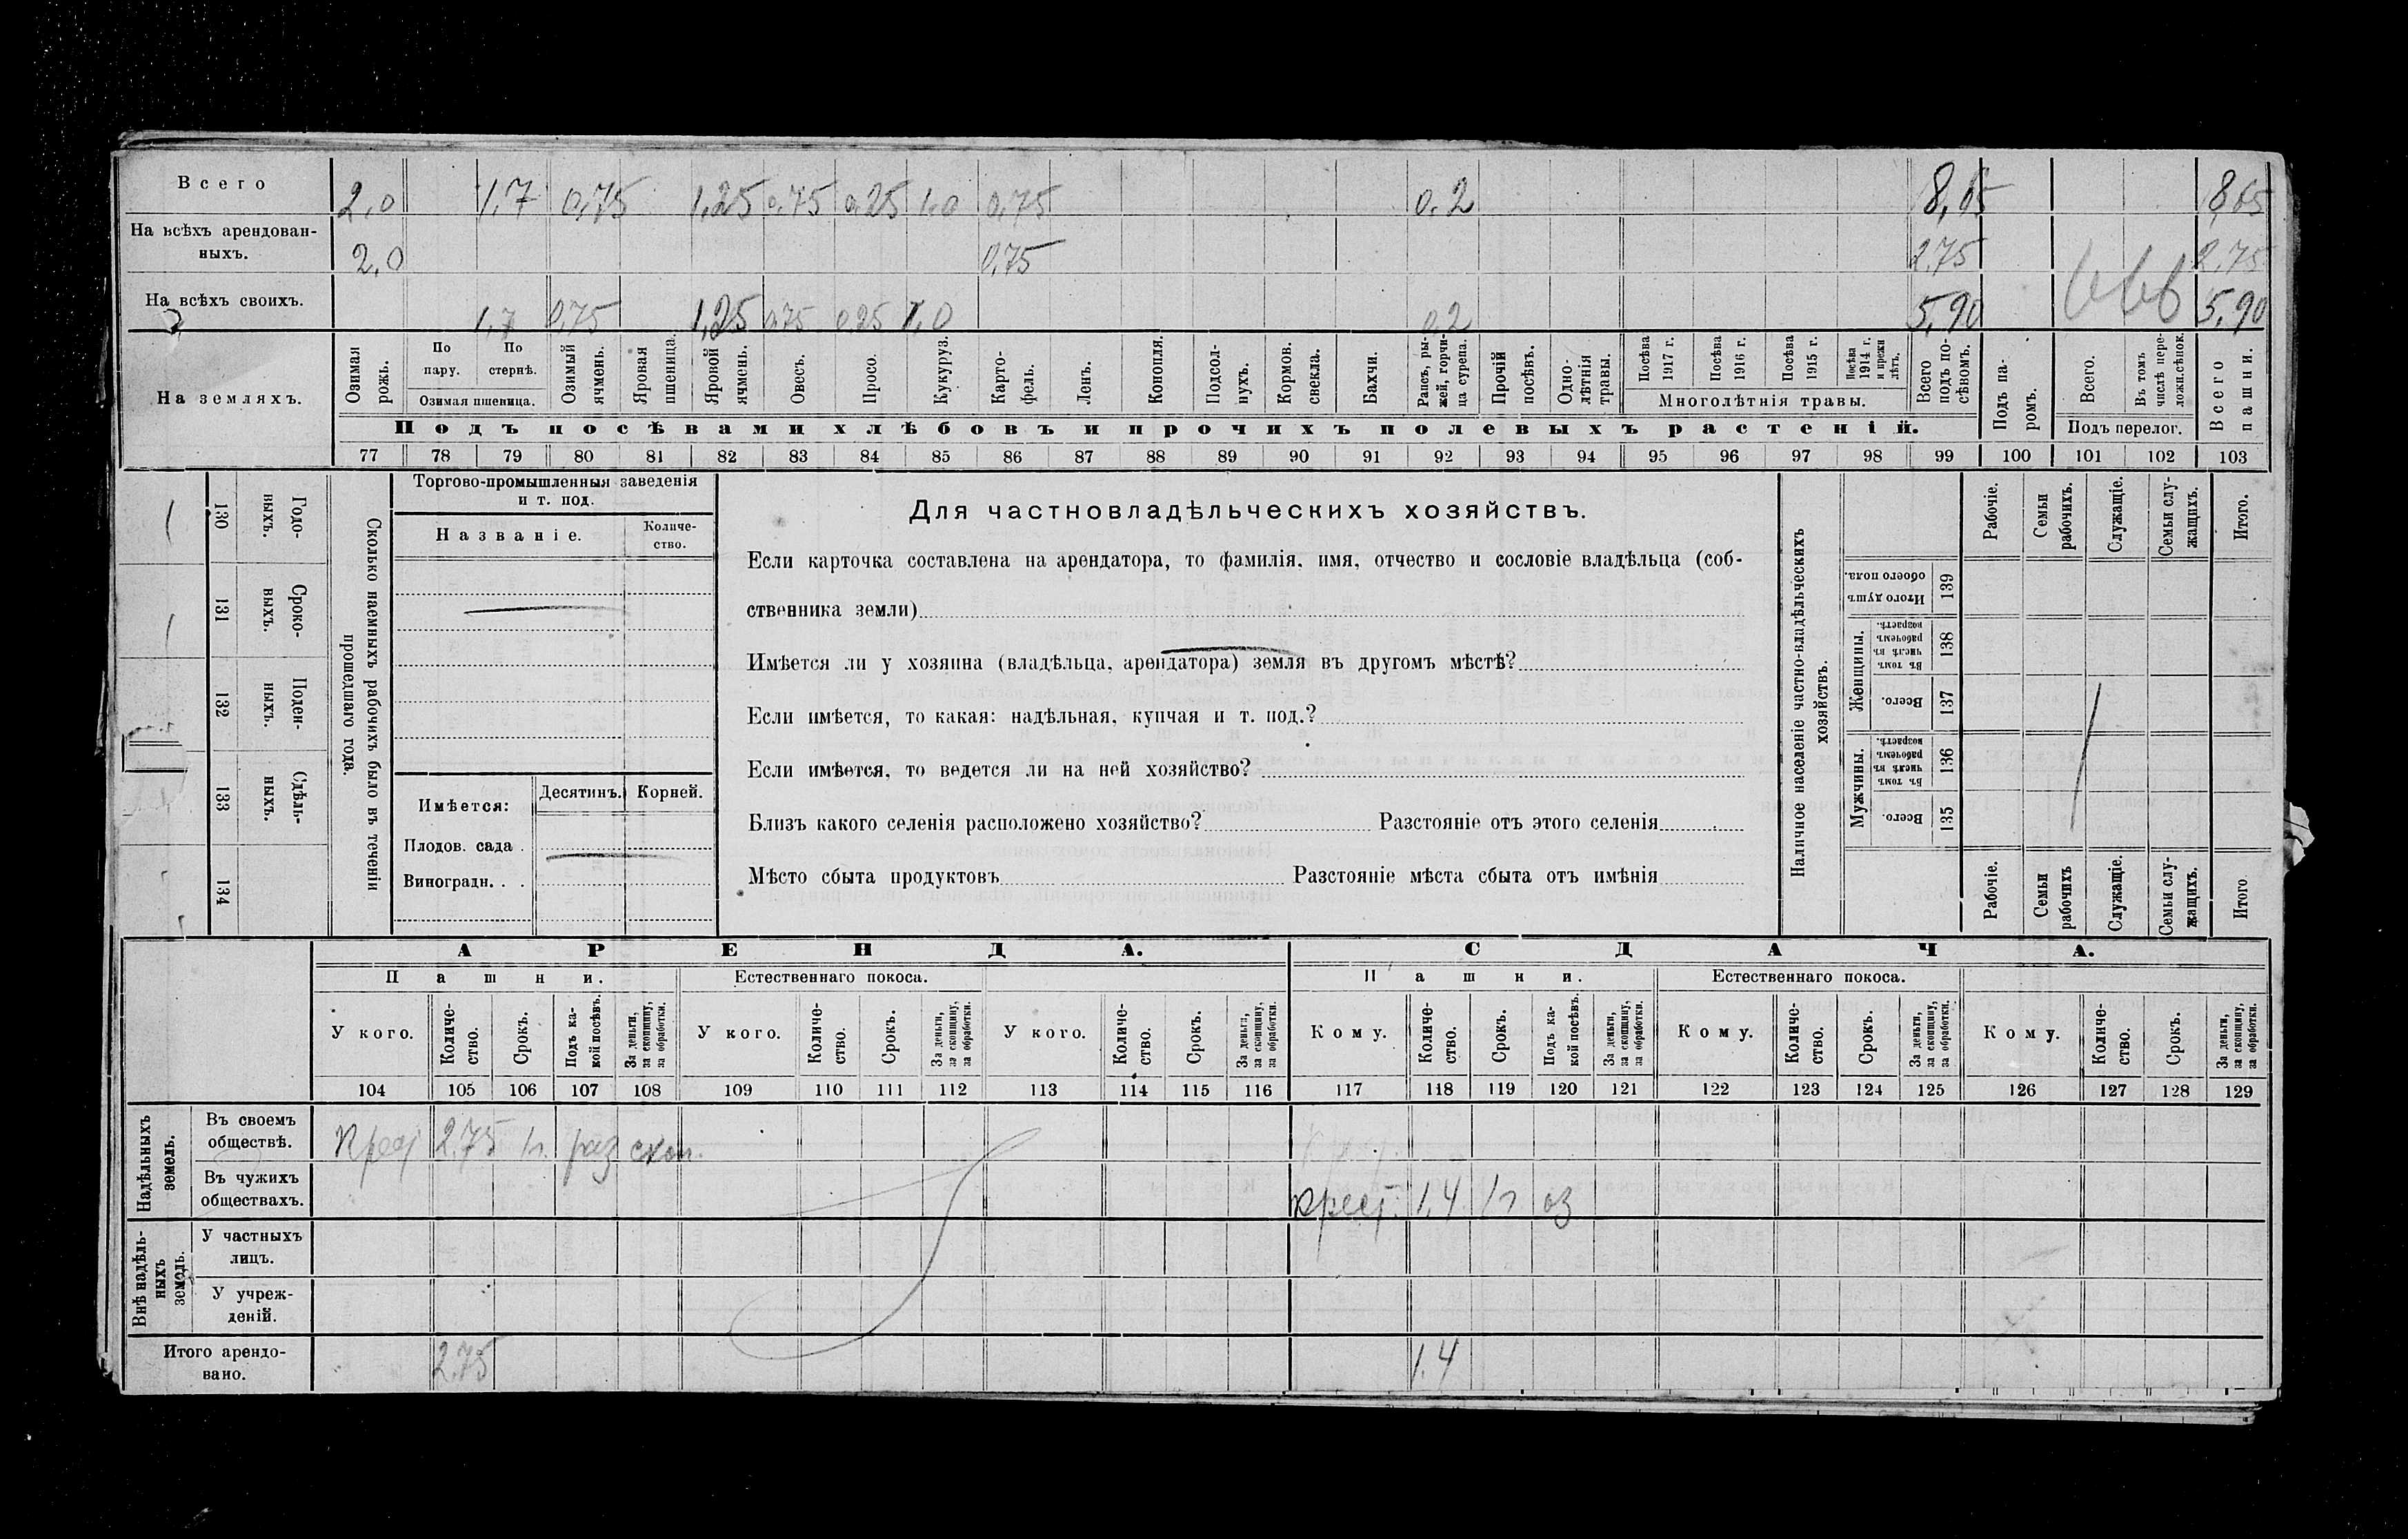 Всего 2,0 1,7 0,75 1,25 0,75 0,25 1,0 0,75 0,2 8,65 8,65
На всѣхъ арендован-
ныхъ. 2,0 0,75 2,75 2,75
На всѣхъ своихъ. 1,7 0,75 1,25 0,75 0,25 1,0 0,2 5,90 5,90
На земляхъ.
Озимая рожь.
По пару.
По стернѣ.
Озимая пшеница.
Озимый ячмень.
Яровая пшеница.
Яровой ячмень.
Овесъ.
Просо.
Кукуруз.
Карто-
фель.
Ленъ.
Конопля.
Подсол-
нухъ.
Кормов. свекла.
Бахчи.
Рапсъ, ры-
жей, горчи-
ца сурепа.
Прочій посѣвъ.
Одно-
лѣтнія травы.
Посѣва 1917 г.
Посѣва 1916 г.
Посѣва 1915 г.
Посѣва 1914 г. и прежн лѣтъ.
Многолѣтнія травы.
Всего подъ по-
сѣвомъ.
Подъ па-
ромъ.
Всего.
Въ томъ числѣ пере-
ложн.сѣнок.
Подъ перелог.
Всего пашни.
Подъ посѣвами хлѣбовъ и прочихъ полевыхъ растеній.
77 78 79 80 81 82 83 84 85 86 87 88 89 90 91 92 93 94 95 96 97 98 99 100 101 102 103
130 Годо-
выхъ.
131 Сроко-
выхъ.
132 Поден-
ныхъ.
133 Сдѣль-
ныхъ.
134
Сколько наемныхъ рабочихъ было въ теченіи
прошедшаго года.
Торгово-промышленныя заведенія
и т. под.
Названіе.
Количе-
ство.
Имѣется:
Десятинъ.
Корней.
Плодов. сада .
Виноградн. . .
Для частновладѣльческихъ хозяйствъ.
Если карточка составлена на арендатора, то фамилія, имя, отчество и сословіе владѣльца (соб-
ственника земли)
Имѣется ли у хозяина (владѣльца, арендатора) земля въ другомъ мѣстѣ?
Если имѣется, то какая: надѣльная, купчая и т. под.?
Если имѣется, то ведется ли на ней хозяйство?
Близъ какого селенія расположено хозяйство? Разстояніе отъ этого селенія
Мѣсто сбыта продуктовъ Разстояніе мѣста сбыта отъ имѣнія
Наличное населеніе частно-владѣльческихъ
хозяйствъ.
Рабочіе.
Семьи рабочихъ.
Служащіе.
Семьи слу-
жащихъ.
Итого.
Итого душъ обоего пола. 139
Женщины.
Въ томъ числѣ въ рабочемъ возрастѣ. 138
Всего. 137
Мужчины.
Въ томъ числѣ въ рабочемъ возрастѣ. 136
Всего. 135
Рабочіе.
Семьи рабочихъ
Служащіе.
Семьи слу-
жащихъ.
Итого
АРЕНДА. СДАЧА.
Пашни. Естественнаго покоса. Пашни. Естественнаго покоса.
У кого.
Количе-
ство.
Срокъ.
Подъ ка-
кой посѣвъ.
За деньги, за скопщину, за обработки.
У кого.
Количе-
ство.
Срокъ.
За деньги, за скопщину, за обработки.
У кого.
Количе-
ство.
Срокъ.
За деньги, за скопщину, за обработки.
Кому.
Количе-
ство.
Срокъ.
Подъ ка-
кой посѣвъ.
За деньги, за скопщину, за обработки.
Кому.
Количе-
ство.
Срокъ.
За деньги, за скопщину, за обработки.
Кому.
Количе-
ство.
Срокъ.
За деньги, за скопщину, за обработки.
104 105 106 107 108 109 110 111 112 113 114 115 116 117 118 119 120 121 122 123 124 125 126 127 128 129
Надѣльныхъ земель.
Въ своемъ
обществѣ. Крест 2.75 1г. раз скоп.
Въ чужихъ
обществахъ. Крест. 1,4 1г оз
Внѣ надѣль-
ныхъ земель.
У частныхъ
лицъ.
У учреж-
деній.
Итого арендо-
вано. 2.75 1.4